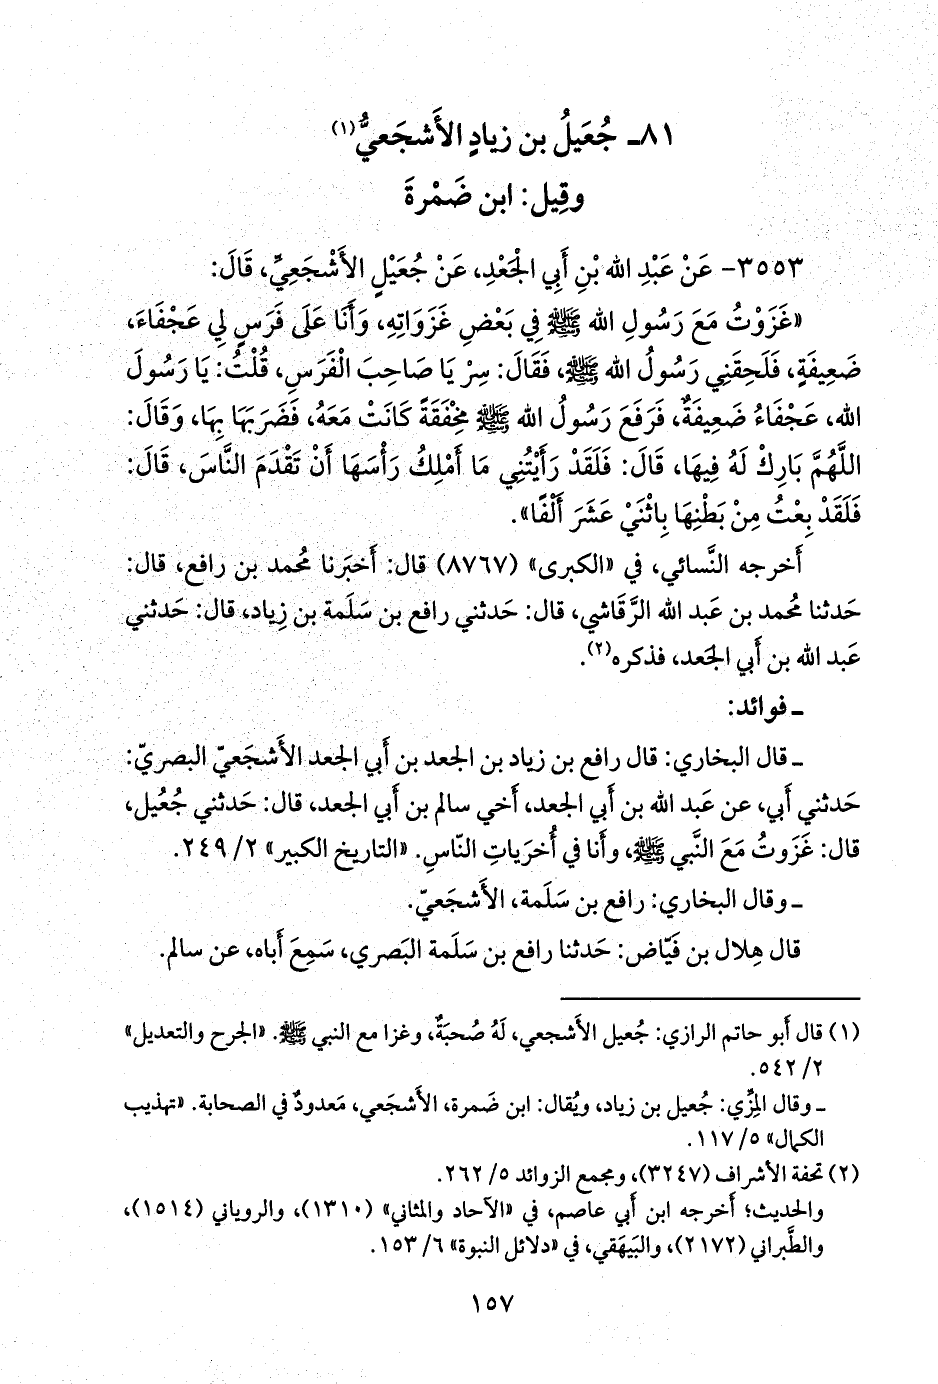 ٨١ـ جُعَيلُ بن زيادٍ الأَشجَعيُّ(١)
وقِيل: ابن ضَمْرةَ
٣٥٥٣- عَنْ عَبْدِ الله بْنِ أَبِي الْجَعْدِ، عَنْ جُعَيْلٍ الأَشْجَعِيِّ، قَالَ:
«غَزَوْتُ مَعَ رَسُولِ الله ﷺ فِي بَعْضِ غَزَوَاتِهِ، وَأَنَا عَلَى فَرَسٍ لِي عَجْفَاءَ،
ضَعِيفَةٍ، فَلَحِقَنِي رَسُولُ الله ﷺ، فَقَالَ: سِرْ يَا صَاحِبَ الْفَرَسِ، قُلْتُ: يَا رَسُولَ
الله، عَجْفَاءُ ضَعِيفَةٌ، فَرَفَعَ رَسُولُ الله ﷺ مِخْفَقَةً كَانَتْ مَعَهُ، فَضَرَبَهَا بِهَا، وَقَالَ:
اللَّهُمَّ بَارِكْ لَهُ فِيهَا، قَالَ: فَلَقَدْ رَأَيْتُنِي مَا أَمْلِكُ رَأْسَهَا أَنْ تَقْدَمَ النَّاسَ، قَالَ:
فَلَقَدْ بِعْتُ مِنْ بَطْنِهَا بِاثْنَيْ عَشَرَ أَلْفًا».
أَخرجه النَّسائي، في «الكبرى» (٨٧٦٧) قال: أَخبَرنا مُحمد بن رافع، قال:
حَدثنا مُحمد بن عَبد الله الرَّقَاشي، قال: حَدثني رافع بن سَلَمة بن زِياد، قال: حَدثني
عَبد الله بن أَبي الجَعد، فذكره(٢).
ـ فوائد:
ـ قال البخاري: قال رافع بن زياد بن الجعد بن أَبي الجعد الأَشجَعيّ البصريّ:
حَدثني أَبي، عن عَبد الله بن أَبي الجعد، أَخي سالم بن أَبي الجعد، قال: حَدثني جُعُيل،
قال: غَزَوتُ مَعَ النَّبي ﷺ، وأَنا في أُخرَياتِ النّاسِ. «التاريخ الكبير» ٢/ ٢٤٩.
ـ وقال البخاري: رافع بن سَلَمة، الأَشجَعيّ.
قال هِلال بن فَيّاض: حَدثنا رافع بن سَلَمة البَصري، سَمِعَ أَباه، عن سالم.
(١) قال أَبو حاتم الرازي: جُعيل الأَشجعي، لَهُ صُحبَةٌ، وغزا مع النبي ﷺ. «الجرح والتعديل»
٢/ ٥٤٢.
ـ وقال المِزِّي: جُعيل بن زياد، ويُقال: ابن ضَمرة، الأَشجَعي، مَعدودٌ في الصحابة. «تهذيب
الكمال» ٥/ ١١٧.
(٢) تحفة الأشراف (٣٢٤٧)، ومجمع الزوائد ٥/ ٢٦٢.
والحديث؛ أَخرجه ابن أَبي عاصم، في «الآحاد والمثاني» (١٣١٠)، والروياني (١٥١٤)،
والطَّبراني (٢١٧٢)، والبَيهَقي، في «دلائل النبوة» ٦/ ١٥٣.
١٥٧